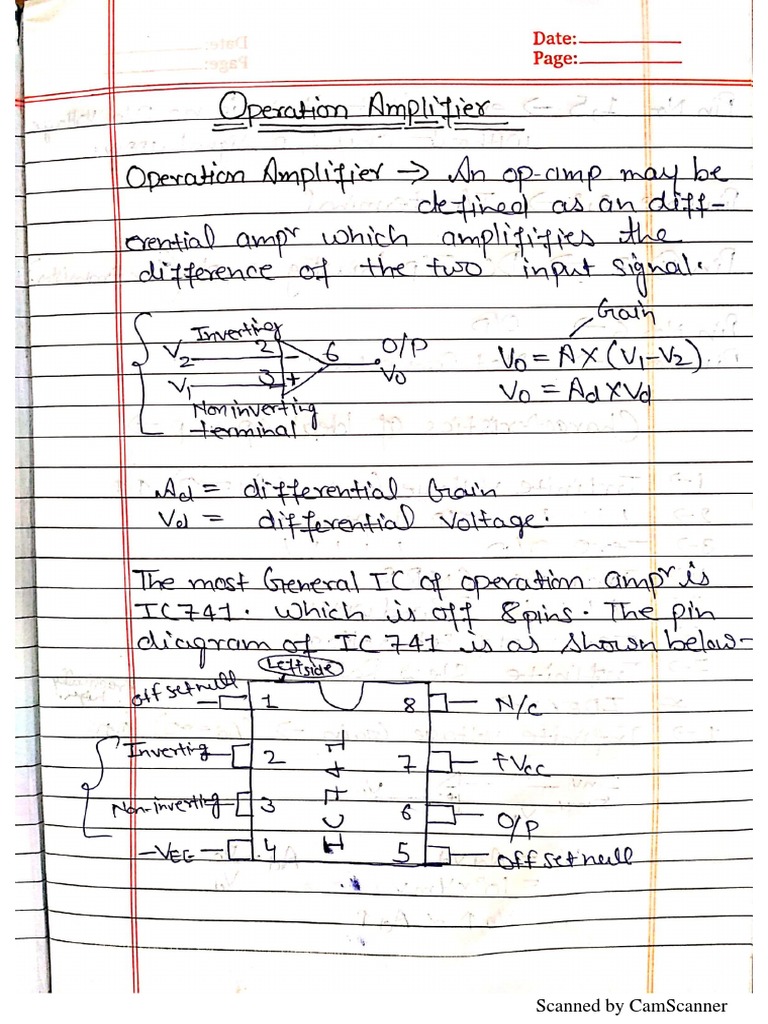 Date:
Page:
Operation Amplifier
Operation Amplifier → An op-amp may be
defined as an diff-
erential ampr which amplififies the
difference of the two input signal.
Gain
Inverting
V2 2 - 6 O/P
V1 3 + V0
Noninverting
terminal
V0 = A X (V1-V2)
V0 = Ad X Vd
Ad = differential Gain
Vd = differential Voltage.
The most General IC of operation ampr is
IC741. which is off 8pins. The pin
diagram of IC741 is as shown below-
Left side
offsetnull 1 8 N/C
Inverting 2 7 +Vcc
Non-inverting 3 6 O/P
-VEE 4 5 offsetnull
IC741
Scanned by CamScanner